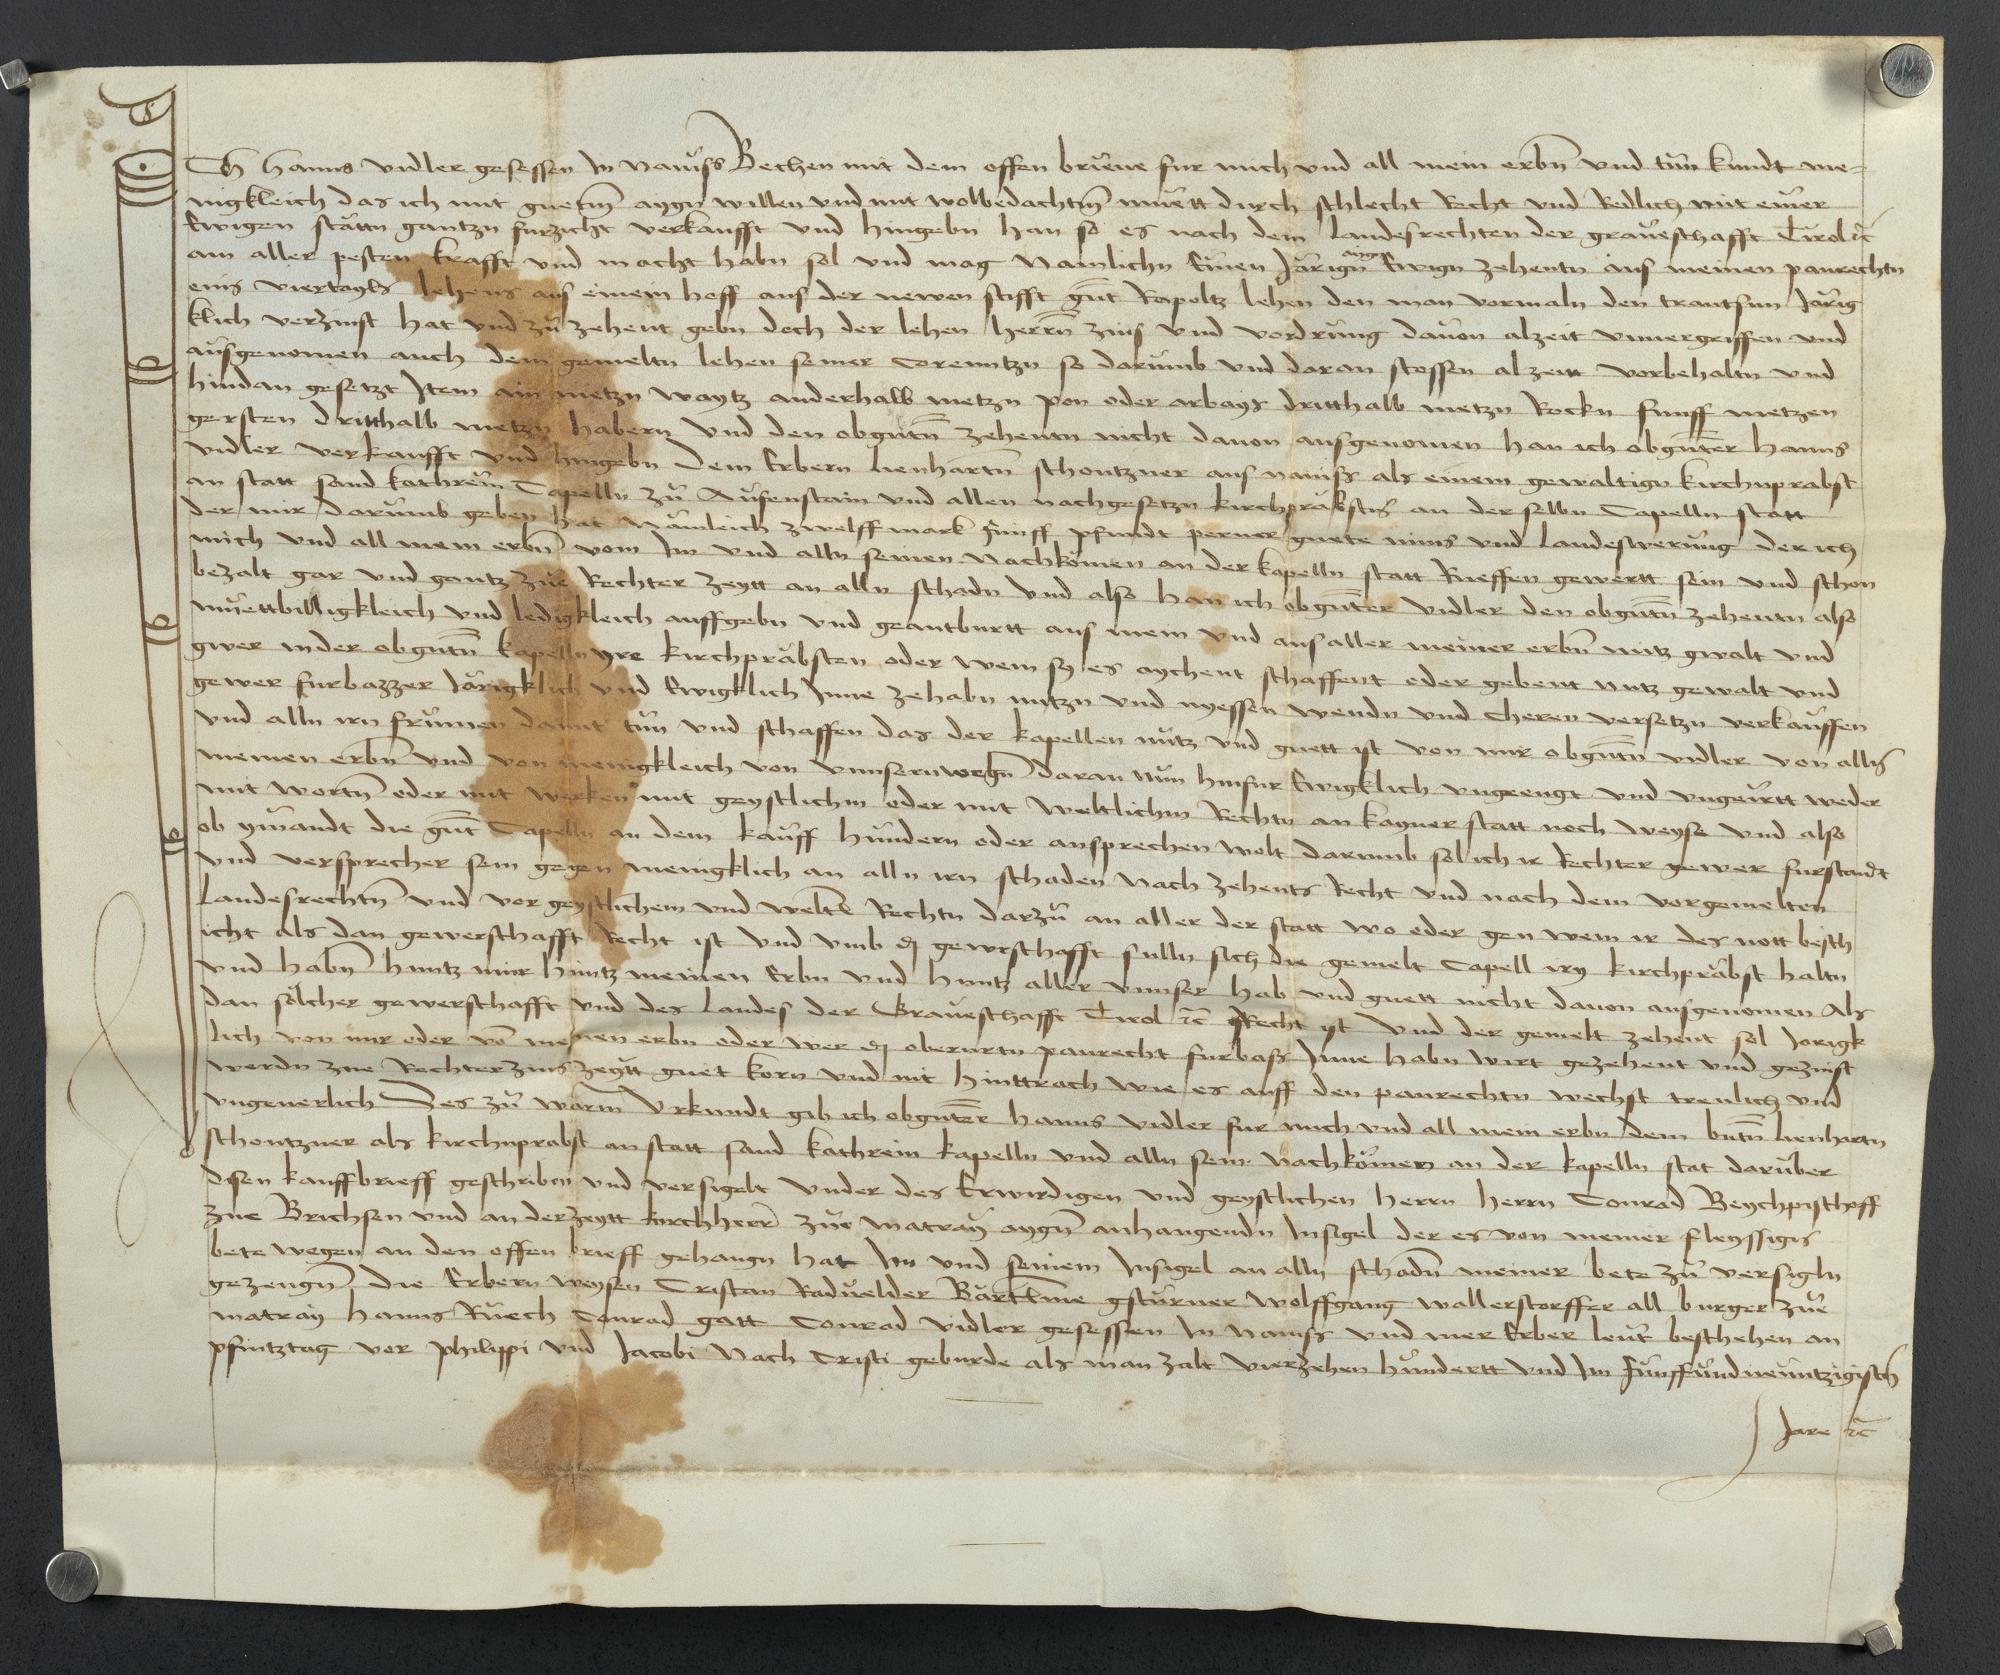 Ich Hanns vidler gesessen In Nauiss Bechen mit dem offen brieue fur mich vnd all mein erbn̄ vnd tun kundt me-
nigkleich das ich mit guetm̄ aygn̄ willen vnd mit wolbedachtm̄ muett durch schlecht Recht vnd Redlich mit einer
Ewigen stattn gantzn furzicht verkaufft vnd hingebn han so es nach dem Landesrechten der graueschafft Tirol ꝛc̄
am aller pesten krafft vnd macht habn sol vnd mag Namlichn Einen Jarign̄ Ewign zehentn aus meinen paurechtn
eins viertayls lehens aus einem hoff aus der newen stifft gn̄t Rapoltz lehen den man vormaln den trautsun Jarig
klich verzinst hat vnd zu zehent gebn doch der lehen herrn̄ zins vnd vordrung dauon alzeit vnuergriffen vnd
ausgenomen auch dem gemeltn lehen seiner Corenntzn so darumb vnd daran stossen alzeitt vorbehaltn vnd
hindan gesetzt Item ain metzn waytz anderhalb metzn pon oder arbays dritthalb metzn Rockn funff metzen
gersten dritthalb metzn habern vnd den obgn̄tn̄ zehentn nicht dauon ausgenomen han ich obgn̄ter hanns
vidler verkaufft vnd hingebn Dem Erbern Lienhartn̄ schontzner aus nauiss als einem gewaltign kirchnprabst
an statt sand kathrein Capelln zu Aufenstain vnd allen nachgesetzn kirchprabstn̄ an der selbn Capelln statt
der mir darumb geben hat Nämleich zwelff mark funff pfundt perner guete mins vnd Landeswerung der ich
mich vnd all mein erbn̄ vom Im vnd alln seinen Nachkömen an der kapelln statt Rueffen gewertt sein vnd schon
bezalt gar vnd gantz zue Rechter zeytt an alln schadn vnd also han ich obgn̄ter vidler den obgn̄tn̄ zehentn also
muettbilligkleich vnd ledigkleich auffgebn vnd geantburtt aus mein vnd aus aller meiner erbn̄ nutz gwalt vnd
gwer in der obgn̄tn̄ kapelln yre kirchprabsten oder wem sy es aychent schaffent oder gebent nutz gewalt vnd
gewer furbazzer Järigklich vnd Ewigklich Inne zehabn nutzn vnd nyessen wendn vnd cheren versetzn verkauffen
vnd alln irn frumen damit tun vnd schaffen das der kapellen nutz vnd guett ist von mir obgn̄tn̄ vidler von alln̄
meinen erbn̄ vnd von menigkleich von vnnsern wegn̄ daran nun hinfur Ewigklich vngeengt vnd vngeirtt weder
mit wortn̄ oder mit werken mit geystlichm oder mit weltlichm Rechtn an kayner statt noch weyse vnd also
ob ymandt die gn̄t Capelln an dem kauff hundern oder ansprechen wolt darumb sol ich ir Rechter gewer furstandt
vnd versprecher sein gegen menigklich an alln irn schaden Nach zehents Recht vnd nach dem vorgemelten
Landesrechtn̄ vnd vor geystlichem vnd weltn̄ Rechtn darzu an aller der statt wo oder gen wem ir des nott besch
icht als dan gewerschafft Recht ist vnd vmb dj gewrschafft sulln sich die gemelt Capell iry kirchprabst haltn
vnd habn̄ hintz mir hintz meinen Erbn vnd hintz aller vnnser hab vnd guett nicht dauon ausgenomen Als
dan sölcher gewerschafft vnd des Landes der Graueschafft Tirol ꝛc̄ Recht ist Vnd der gemelt zehent sol Jorigk
lich von mir oder vō meinen erbn oder wer dj oberurtn paurecht furbass Inne habn wirt gezehent vnd gezinst
werdn zue Rechter zins zeytt guet korn vnd nit hinttrach wie es auff den paurechtn wechst treulich vnd
vngeuerlich Des zu warm̄ vrkundt gib ich obgn̄ter hanns vidler fur mich vnd all mein erbn dem bntn̄ Lienhartn
schontzner als kirchnprabst an statt sand kathrein kapelln vnd alln sein Nachkömen an der kapelln stat daruber
disen kauffbrieff geschriben vnd versigelt vnder des Erwirdigen vnd geystlichen herrn herrn Conrad Beychpischoff
zue Brichsen vnd an der zeytt kirchherr zue Matray aygn̄ anhangendn Insigel der es von meiner fleyssign
bete wegen an den offen brieff gehangn hat Im vnd seinem Insigel an alln schadn̄ meiner bete zu versigln
gezeugn̄ die Erbern weysen Cristan Raduelder Bartlme gsturner wolffgang wallerstorffer all burger zue
matray hanns Ruech Conrad gatt Conrad vidler gesessen In Nauiss vnd mer Erber leut beschehen an
pfintztag vor philippi vnd Jacobi Nach Cristi geburde als man zalt vierzehen hundertt vnd Im funffundneuntzigistn̄
Jare ꝛc̄